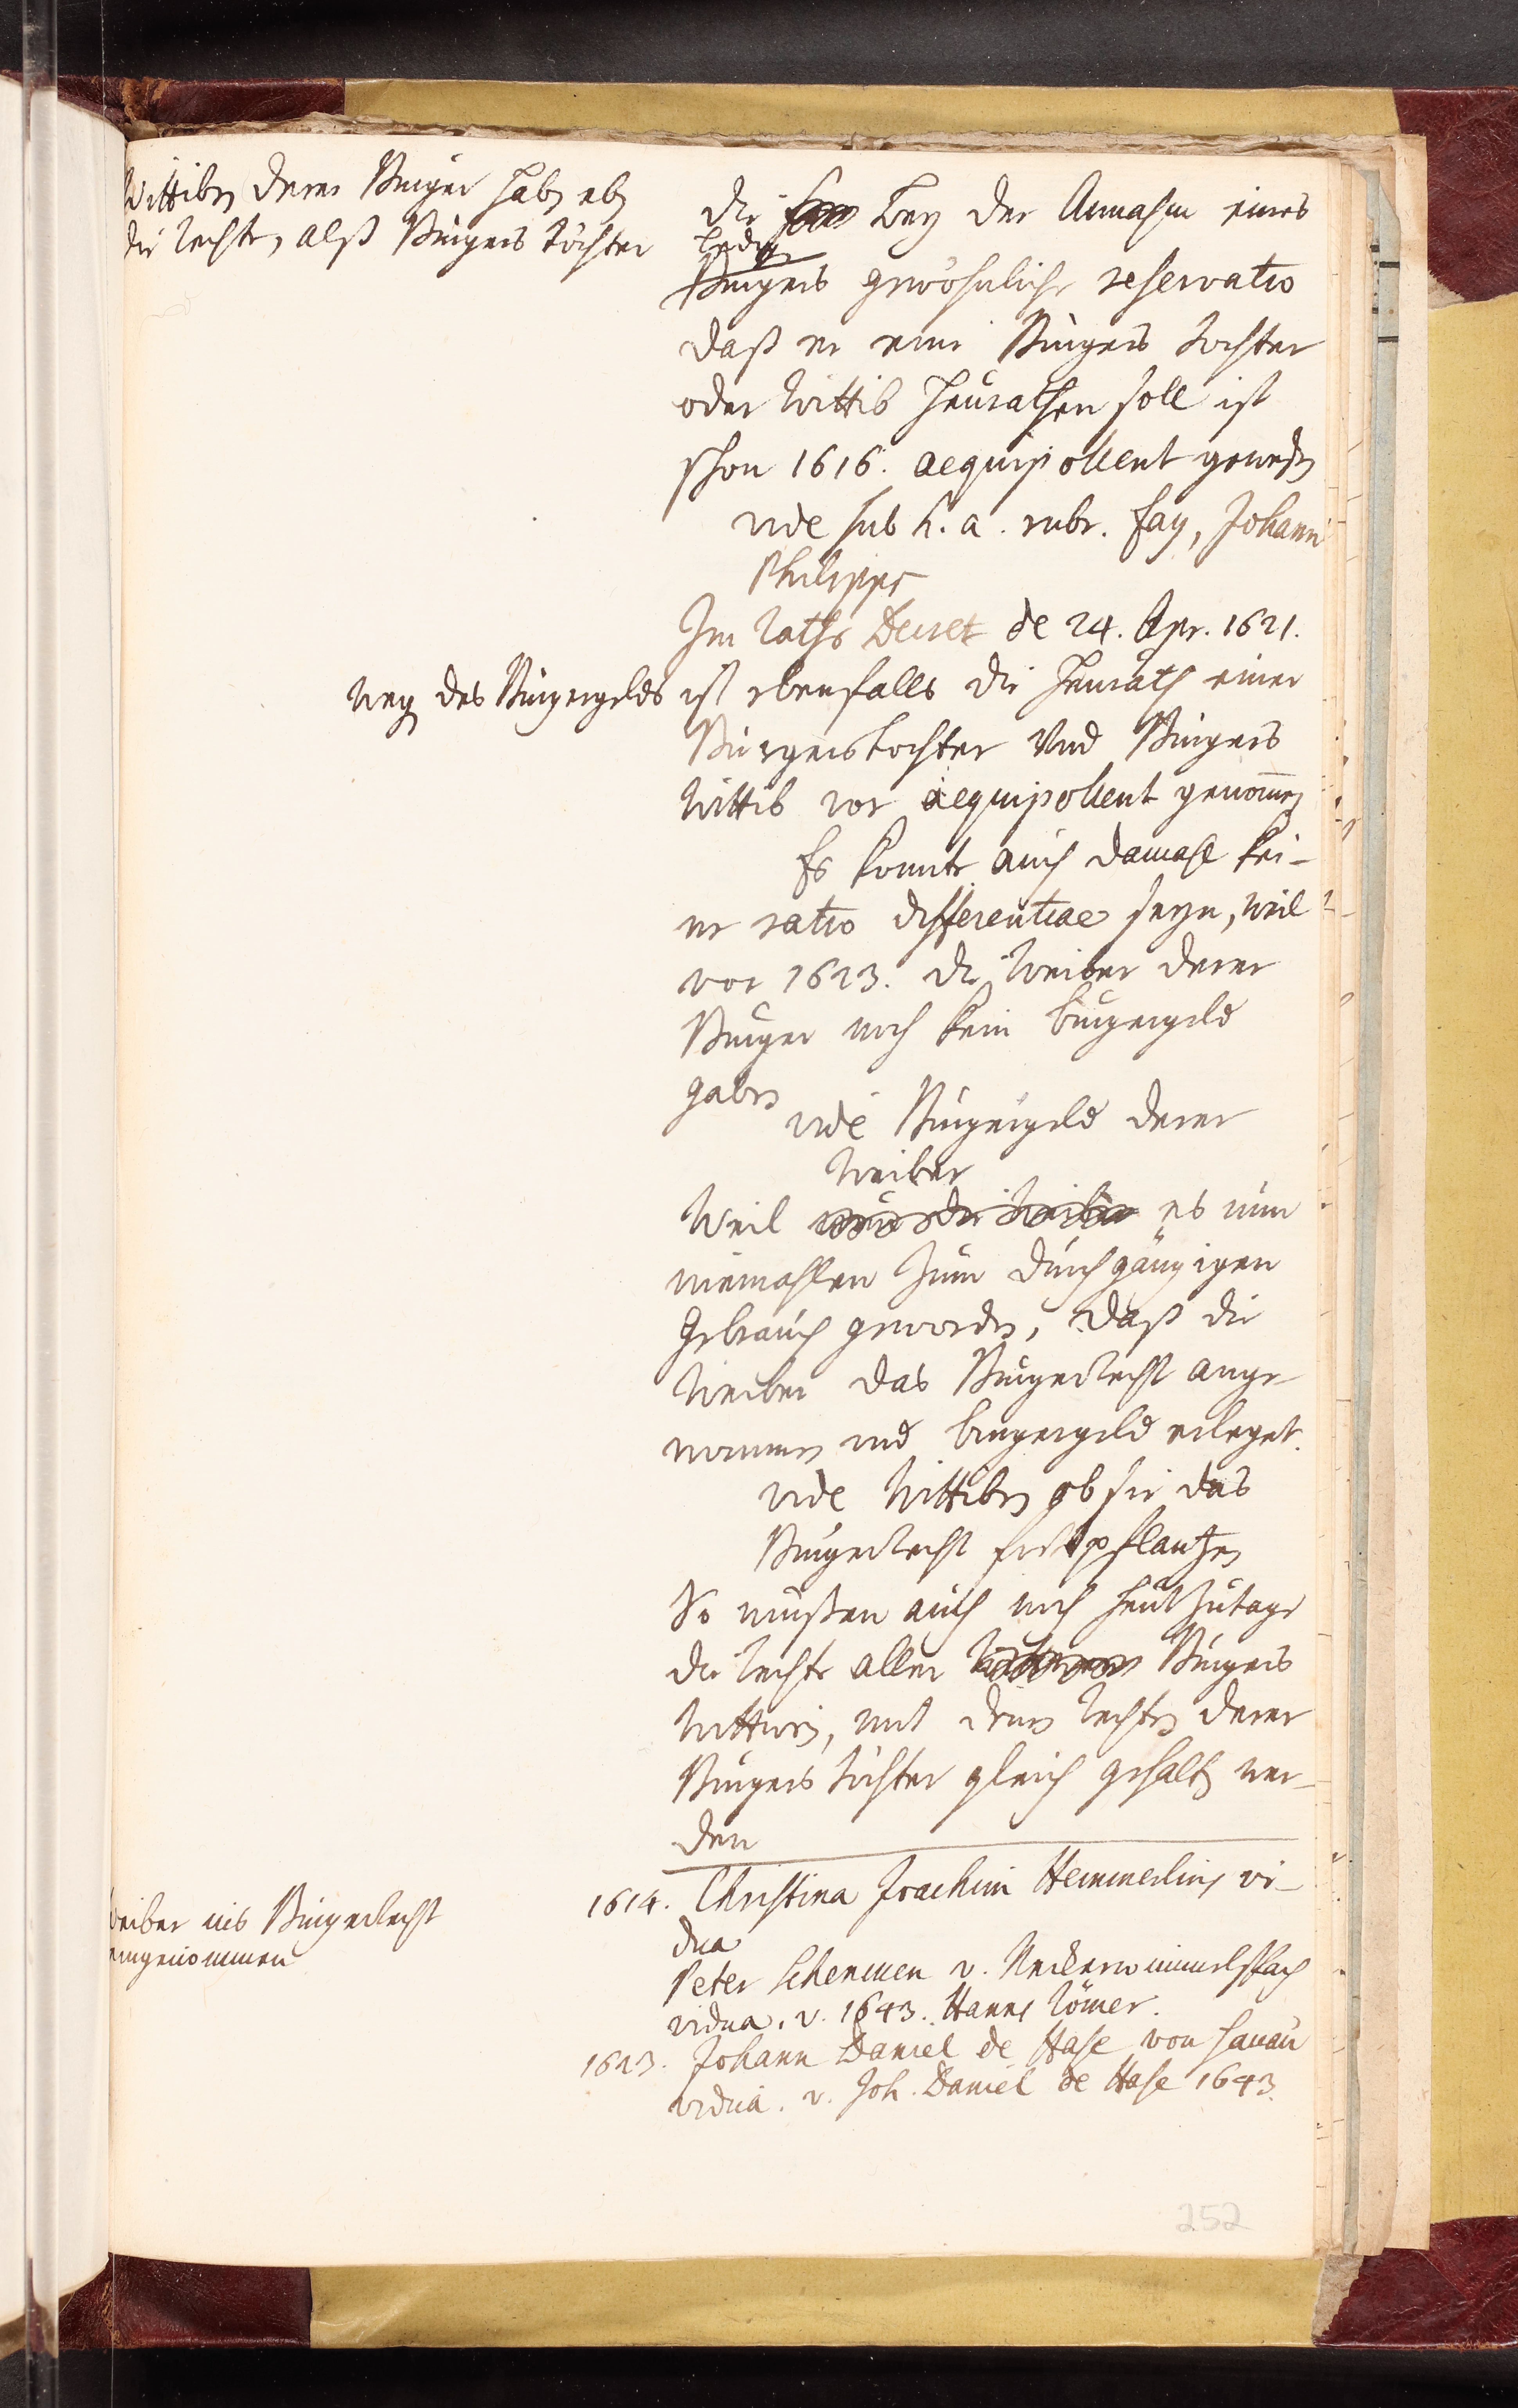 Wittiben derer Burger haben eben
die rechte, alß Burgers töchter
die bey der Annahm eines
ledigen
Burgers gewöhnliche reservatio
daß er eine Burgers tochter
oder Wittib heurathen soll ist
schon 1616. aequipollent gewesen
vide sub h. a. rubr. Fay, Johann
Philipps
Im Raths Decret de 24. Apr. 1621.
weg des Burgergelds
ist ebenfalls die Heurath einer
Burgerstochter und Burgers
Wittib vor aequipollent genommen
Es konnte auch damahl kei-
ne ratio differentiae seyn, weil
vor 1623. die Weiber derer
Burger noch kein burgergeld
gaben
vide Burgergeld derer
Weiber
Weil es nun
niemahlen zum durchgängigen
Gebrauch geworden, daß die
Weiber das Burgerrecht ange-
nommen und burgergeld erleget.
vide Wittiben ob sie das
Burgerrecht fortpflantzen
So mußen auch noch heut zutage
die rechte aller Burgers
Wittwen, mit denen rechten derer
Burgers töchter gleich gehalten wer-
den
Weiber ins Burgerrecht
eingenommen
1614. Christina Joachim Hemmerling vi-
dua
Peter Schermen v.
vidua. v. 1643. Hanns Römer.
1623. Johann Daniel de Hase von Hanau
vidua. v. Joh. Daniel de Hase 1643.
252